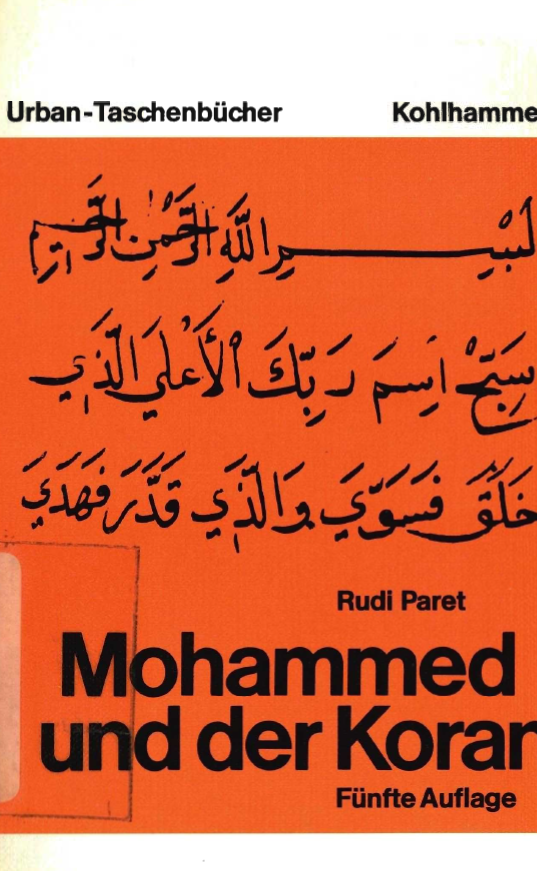 Urban-Taschenbücher Kohlhamme
بِسْمِ اللَّهِ الرَّحْمٰنِ الرَّحِيمِ
سَبِّحْ اِسمَ رَبِّكَ الأَعلَي الَّذِي
خَلَقَ فَسَوَّي وَالَّذِي قَدَّرَ فَهَدَي
Rudi Paret
Mohammed
und der Koran
Fünfte Auflage